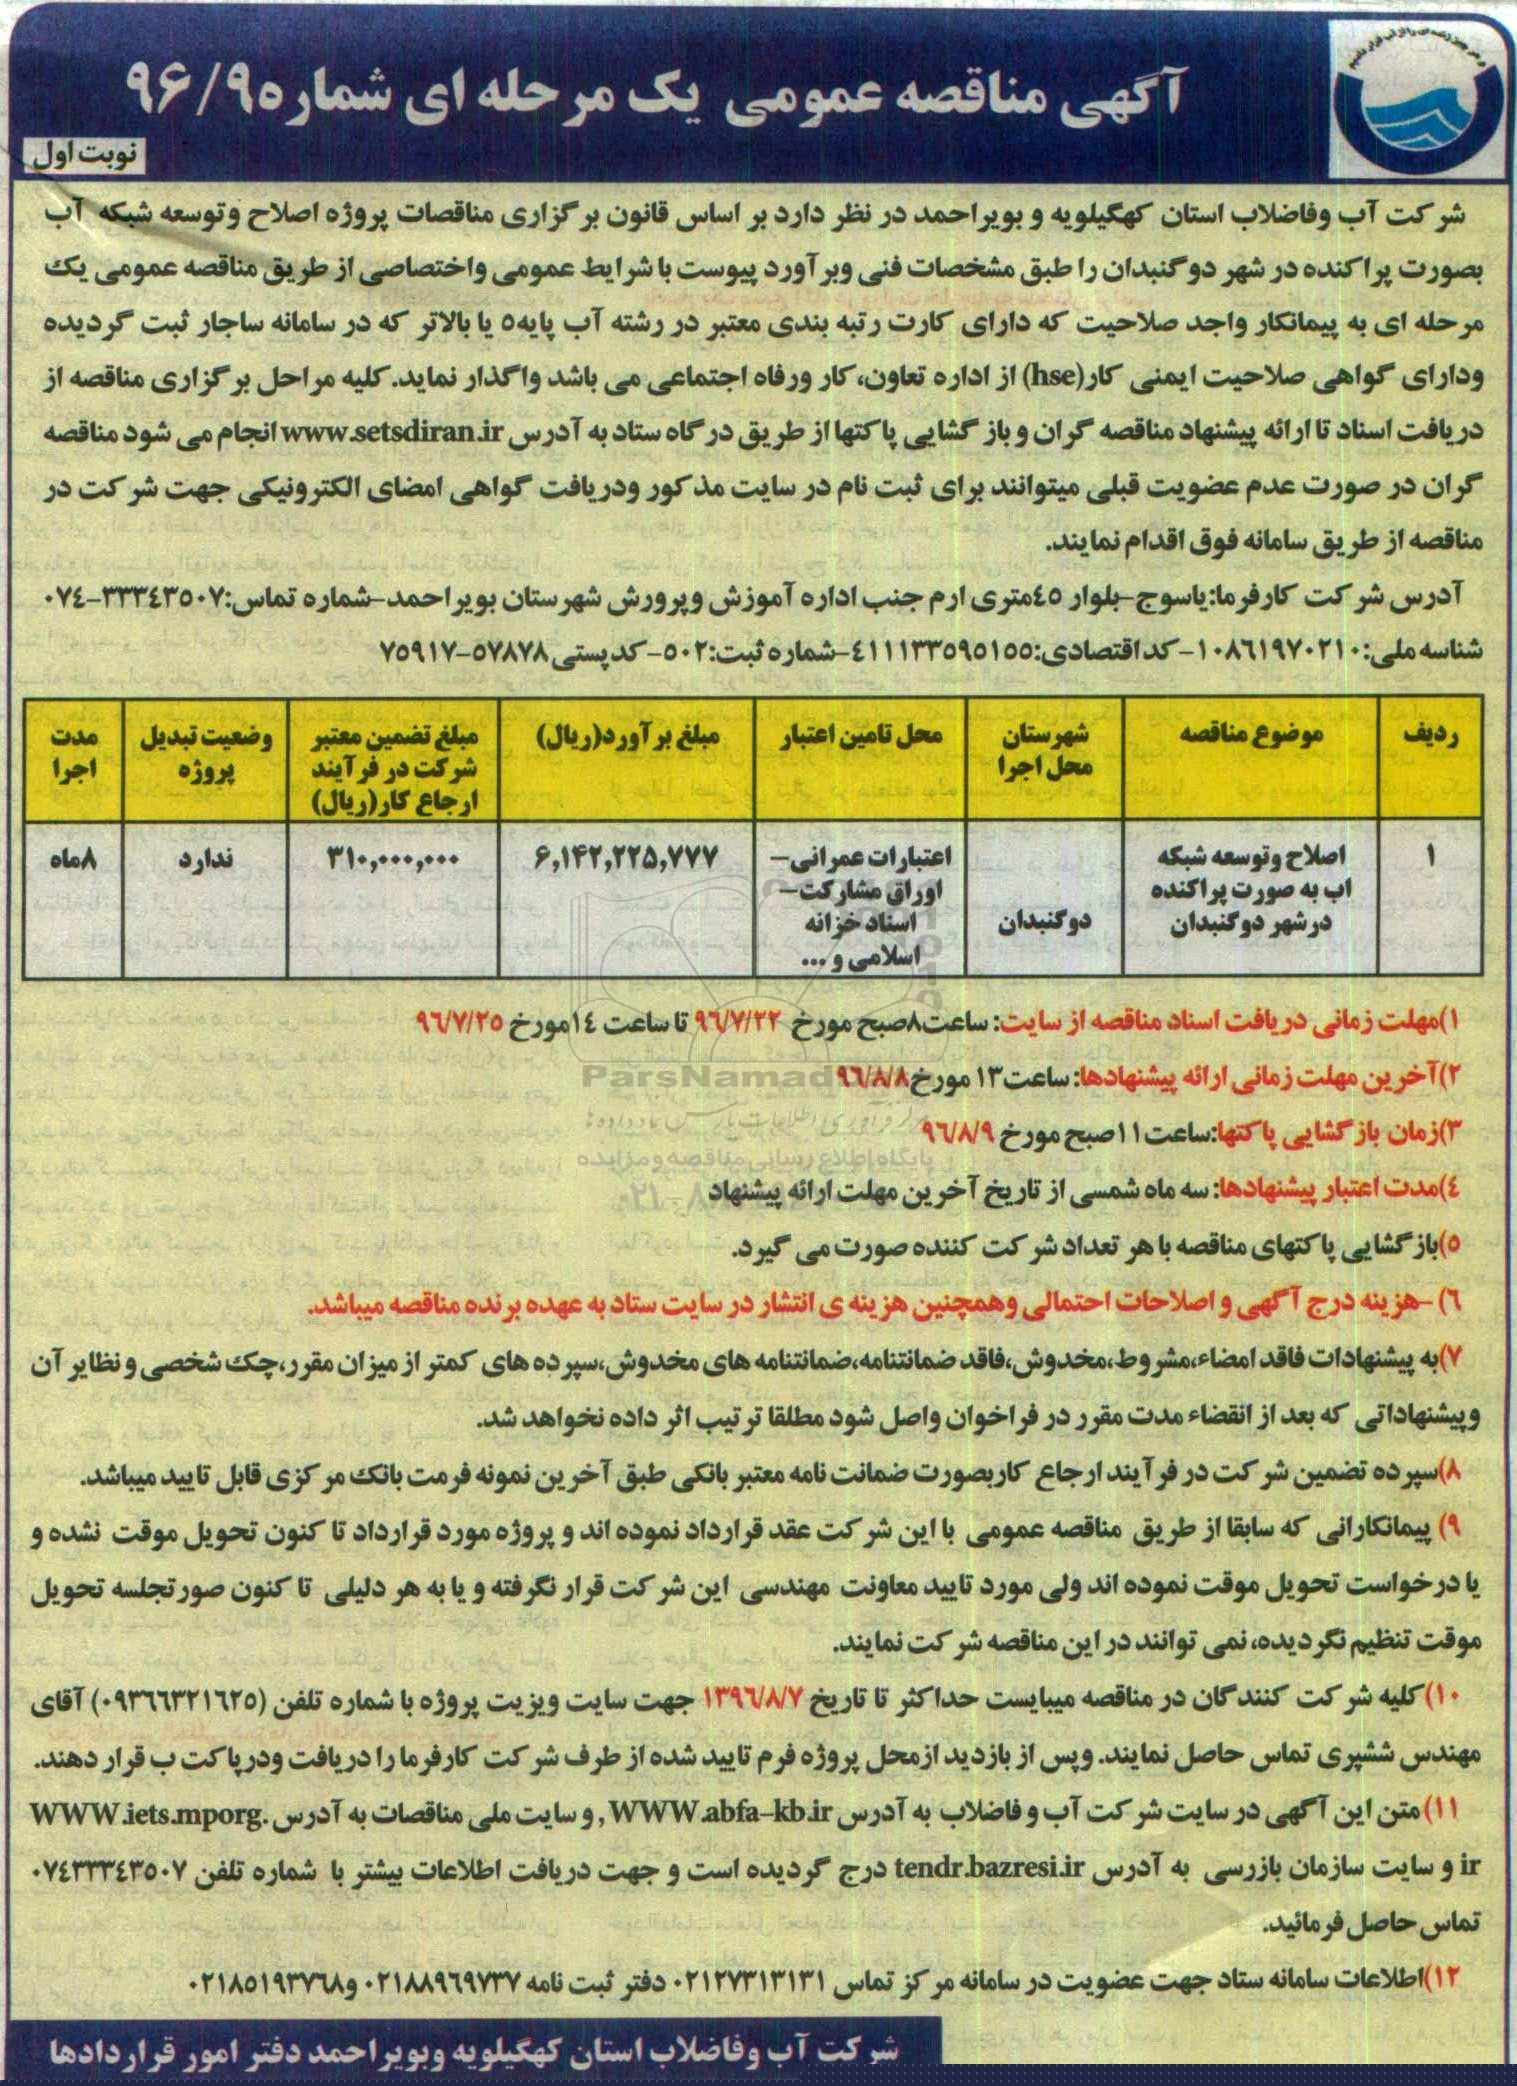 آگهی مناقصه عمومی یک مرحله ای شماره ۹۶/۹
نوبت اول
شرکت آب وفاضلاب استان کهگیلویه و بویراحمد در نظر دارد بر اساس قانون برگزاری مناقصات پروژه اصلاح وتوسعه شبکه آب
بصورت پراکنده در شهر دوگنبدان را طبق مشخصات فنی وبرآورد پیوست با شرایط عمومی واختصاصی از طریق مناقصه عمومی یک
مرحله ای به پیمانکار واجد صلاحیت که دارای کارت رتبه بندی معتبر در رشته آب پایه۵ یا بالاتر که در سامانه ساجار ثبت گردیده
ودارای گواهی صلاحیت ایمنی کار(hse) از اداره تعاون،کار ورفاه اجتماعی می باشد واگذار نماید.کلیه مراحل برگزاری مناقصه از
دریافت اسناد تا ارائه پیشنهاد مناقصه گران و باز گشایی پاکتها از طریق درگاه ستاد به آدرس www.setsdiran.ir انجام می شود مناقصه
گران در صورت عدم عضویت قبلی میتوانند برای ثبت نام در سایت مذکور ودریافت گواهی امضای الکترونیکی جهت شرکت در
مناقصه از طریق سامانه فوق اقدام نمایند.
آدرس شرکت کارفرما:یاسوج-بلوار ٤٥متری ارم جنب اداره آموزش وپرورش شهرستان بویراحمد-شماره تماس:۳۳۳٤۳۵۰۷-۰۷٤
شناسه ملی:۱۰۸٦۱۹۷۰۲۱۰-کد اقتصادی:٤۱۱۱۳۳۵۹۵۱۵۵-شماره ثبت:۵۰۲-کدپستی ۵۷۸۷۸-۷۵۹۱۷
ردیف موضوع مناقصه شهرستان محل اجرا محل تامین اعتبار مبلغ برآورد(ریال) مبلغ تضمین معتبر شرکت در فرآیند ارجاع کار(ریال) وضعیت تبدیل پروژه مدت اجرا
۱ اصلاح وتوسعه شبکه اب به صورت پراکنده درشهر دوگنبدان دوگنبدان اعتبارات عمرانی- اوراق مشارکت- اسناد خزانه اسلامی و ... ۶,۱۴۲,۲۲۵,۷۷۷ ۳۱۰,۰۰۰,۰۰۰ ندارد ۸ماه
۱)مهلت زمانی دریافت اسناد مناقصه از سایت: ساعت۸صبح مورخ ۹٦/۷/۲۲ تا ساعت ۱٤مورخ ۹٦/۷/۲۵
۲)آخرین مهلت زمانی ارائه پیشنهادها: ساعت۱۳ مورخ۹٦/۸/۸
ParsNamadData
۳)زمان بازگشایی پاکتها:ساعت۱۱صبح مورخ ۹٦/۸/۹
پایگاه اطلاع رسانی مناقصه و مزایده
٤)مدت اعتبار پیشنهادها: سه ماه شمسی از تاریخ آخرین مهلت ارائه پیشنهاد
۵)بازگشایی پاکتهای مناقصه با هر تعداد شرکت کننده صورت می گیرد.
٦)-هزینه درج آگهی و اصلاحات احتمالی وهمچنین هزینه ی انتشار در سایت ستاد به عهده برنده مناقصه میباشد.
۷)به پیشنهادات فاقد امضاء،مشروط،مخدوش،فاقد ضمانتنامه،ضمانتنامه های مخدوش،سپرده های کمتر از میزان مقرر،چک شخصی و نظایر آن
وپیشنهاداتی که بعد از انقضاء مدت مقرر در فراخوان واصل شود مطلقا ترتیب اثر داده نخواهد شد.
۸)سپرده تضمین شرکت در فرآیند ارجاع کاربصورت ضمانت نامه معتبر بانکی طبق آخرین نمونه فرمت بانک مرکزی قابل تایید میباشد.
۹) پیمانکارانی که سابقا از طریق مناقصه عمومی با این شرکت عقد قرارداد نموده اند و پروژه مورد قرارداد تا کنون تحویل موقت نشده و
یا درخواست تحویل موقت نموده اند ولی مورد تایید معاونت مهندسی این شرکت قرار نگرفته و یا به هر دلیلی تا کنون صورتجلسه تحویل
موقت تنظیم نگردیده، نمی توانند در این مناقصه شرکت نمایند.
۱۰)کلیه شرکت کنندگان در مناقصه میبایست حداکثر تا تاریخ ۱۳۹٦/۸/۷ جهت سایت ویزیت پروژه با شماره تلفن (۰۹۳٦٦۳۲۱٦۲۵) آقای
مهندس ششپری تماس حاصل نمایند. وپس از بازدید ازمحل پروژه فرم تایید شده از طرف شرکت کارفرما را دریافت ودرپاکت ب قرار دهند.
۱۱)متن این آگهی در سایت شرکت آب و فاضلاب به آدرس WWW.abfa-kb.ir , و سایت ملی مناقصات به آدرس WWW.iets.mporg.
ir و سایت سازمان بازرسی به آدرس tendr.bazresi.ir درج گردیده است و جهت دریافت اطلاعات بیشتر با شماره تلفن ۰۷٤۳۳۳٤۳۵۰۷
تماس حاصل فرمائید.
۱۲)اطلاعات سامانه ستاد جهت عضویت در سامانه مرکز تماس ۰۲۱۲۷۳۱۳۱۳۱ دفتر ثبت نامه ۰۲۱۸۸۹٦۹۷۳۷ و۰۲۱۸۵۱۹۳۷٦۸
شرکت آب وفاضلاب استان کهگیلویه وبویراحمد دفتر امور قراردادها